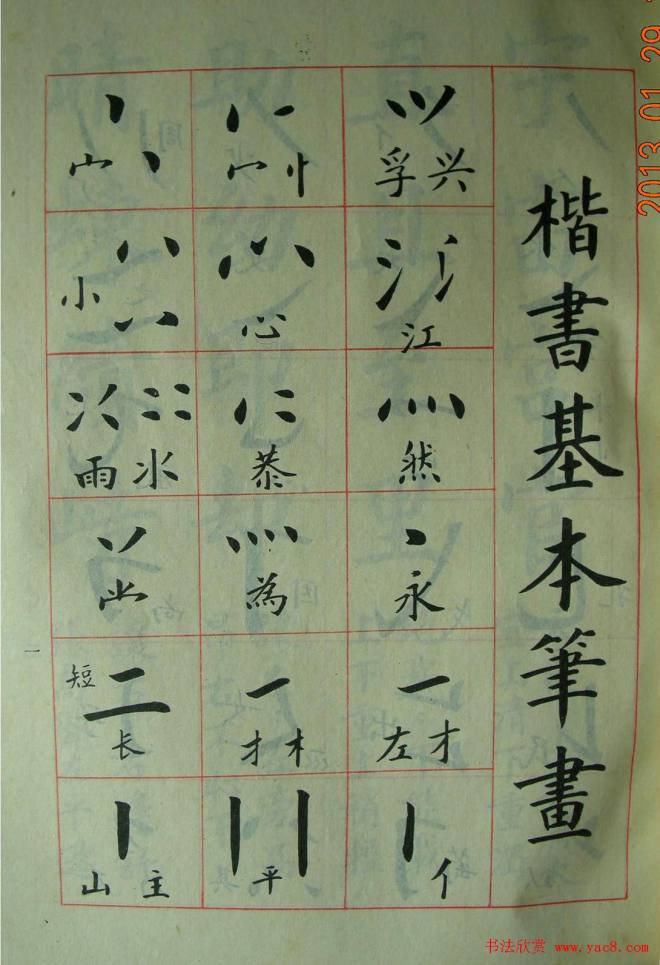 楷書基本筆畫
孚 兴
江
然
永
左 才
亻
宀 忄
心
恭
為
才 木
平
宀
小
雨 水
短
长
山 主
一
2013 01 29
书法欣赏 www.yac8.com